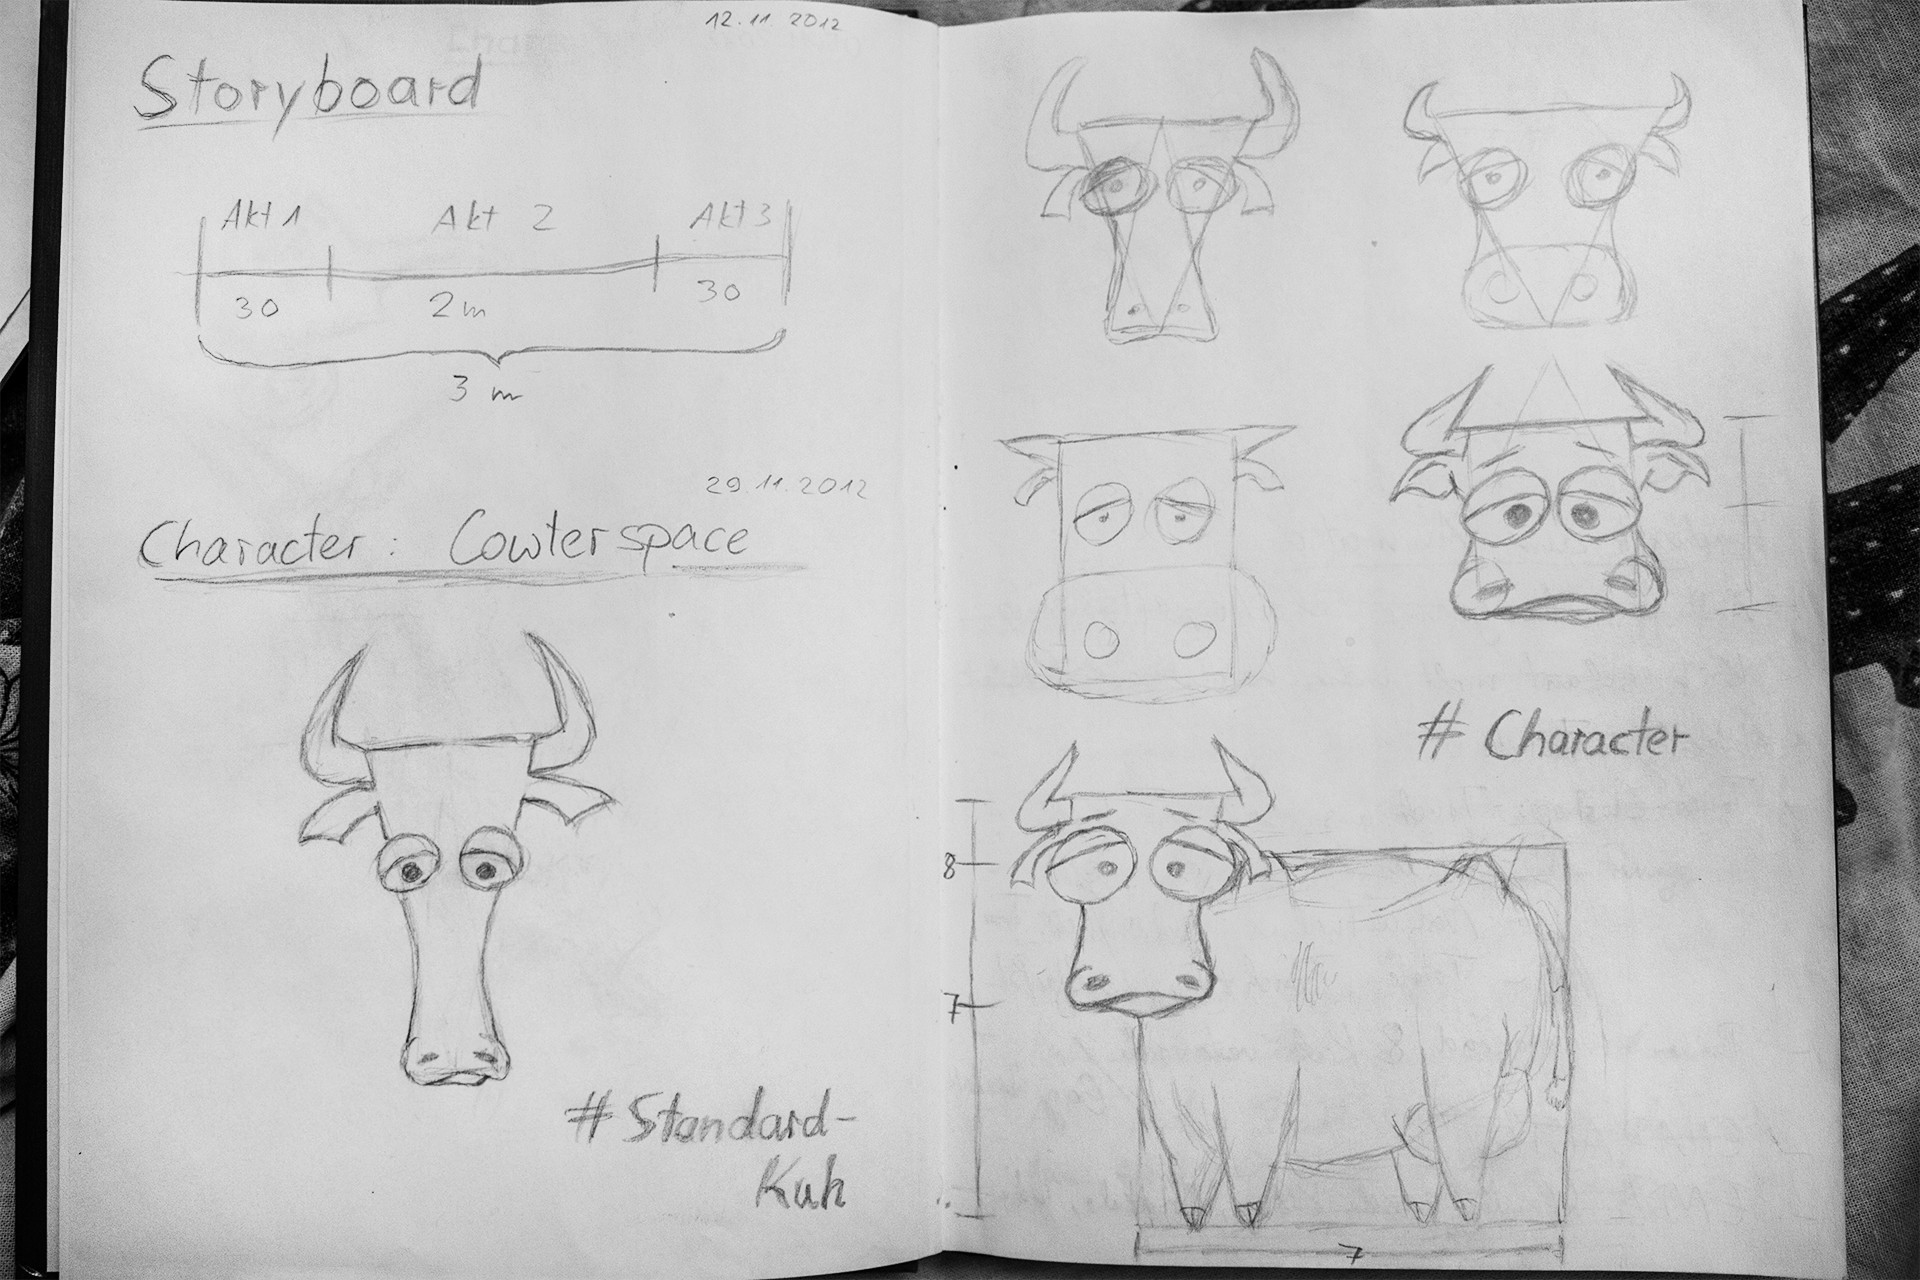 12.11 2012
Storyboard
Akt 1 Akt 2 Akt 3
30 2m 30
3 m
29.11.2012
Character: Cowterspace
# Standard-
Kuh
# Character
8
7
7